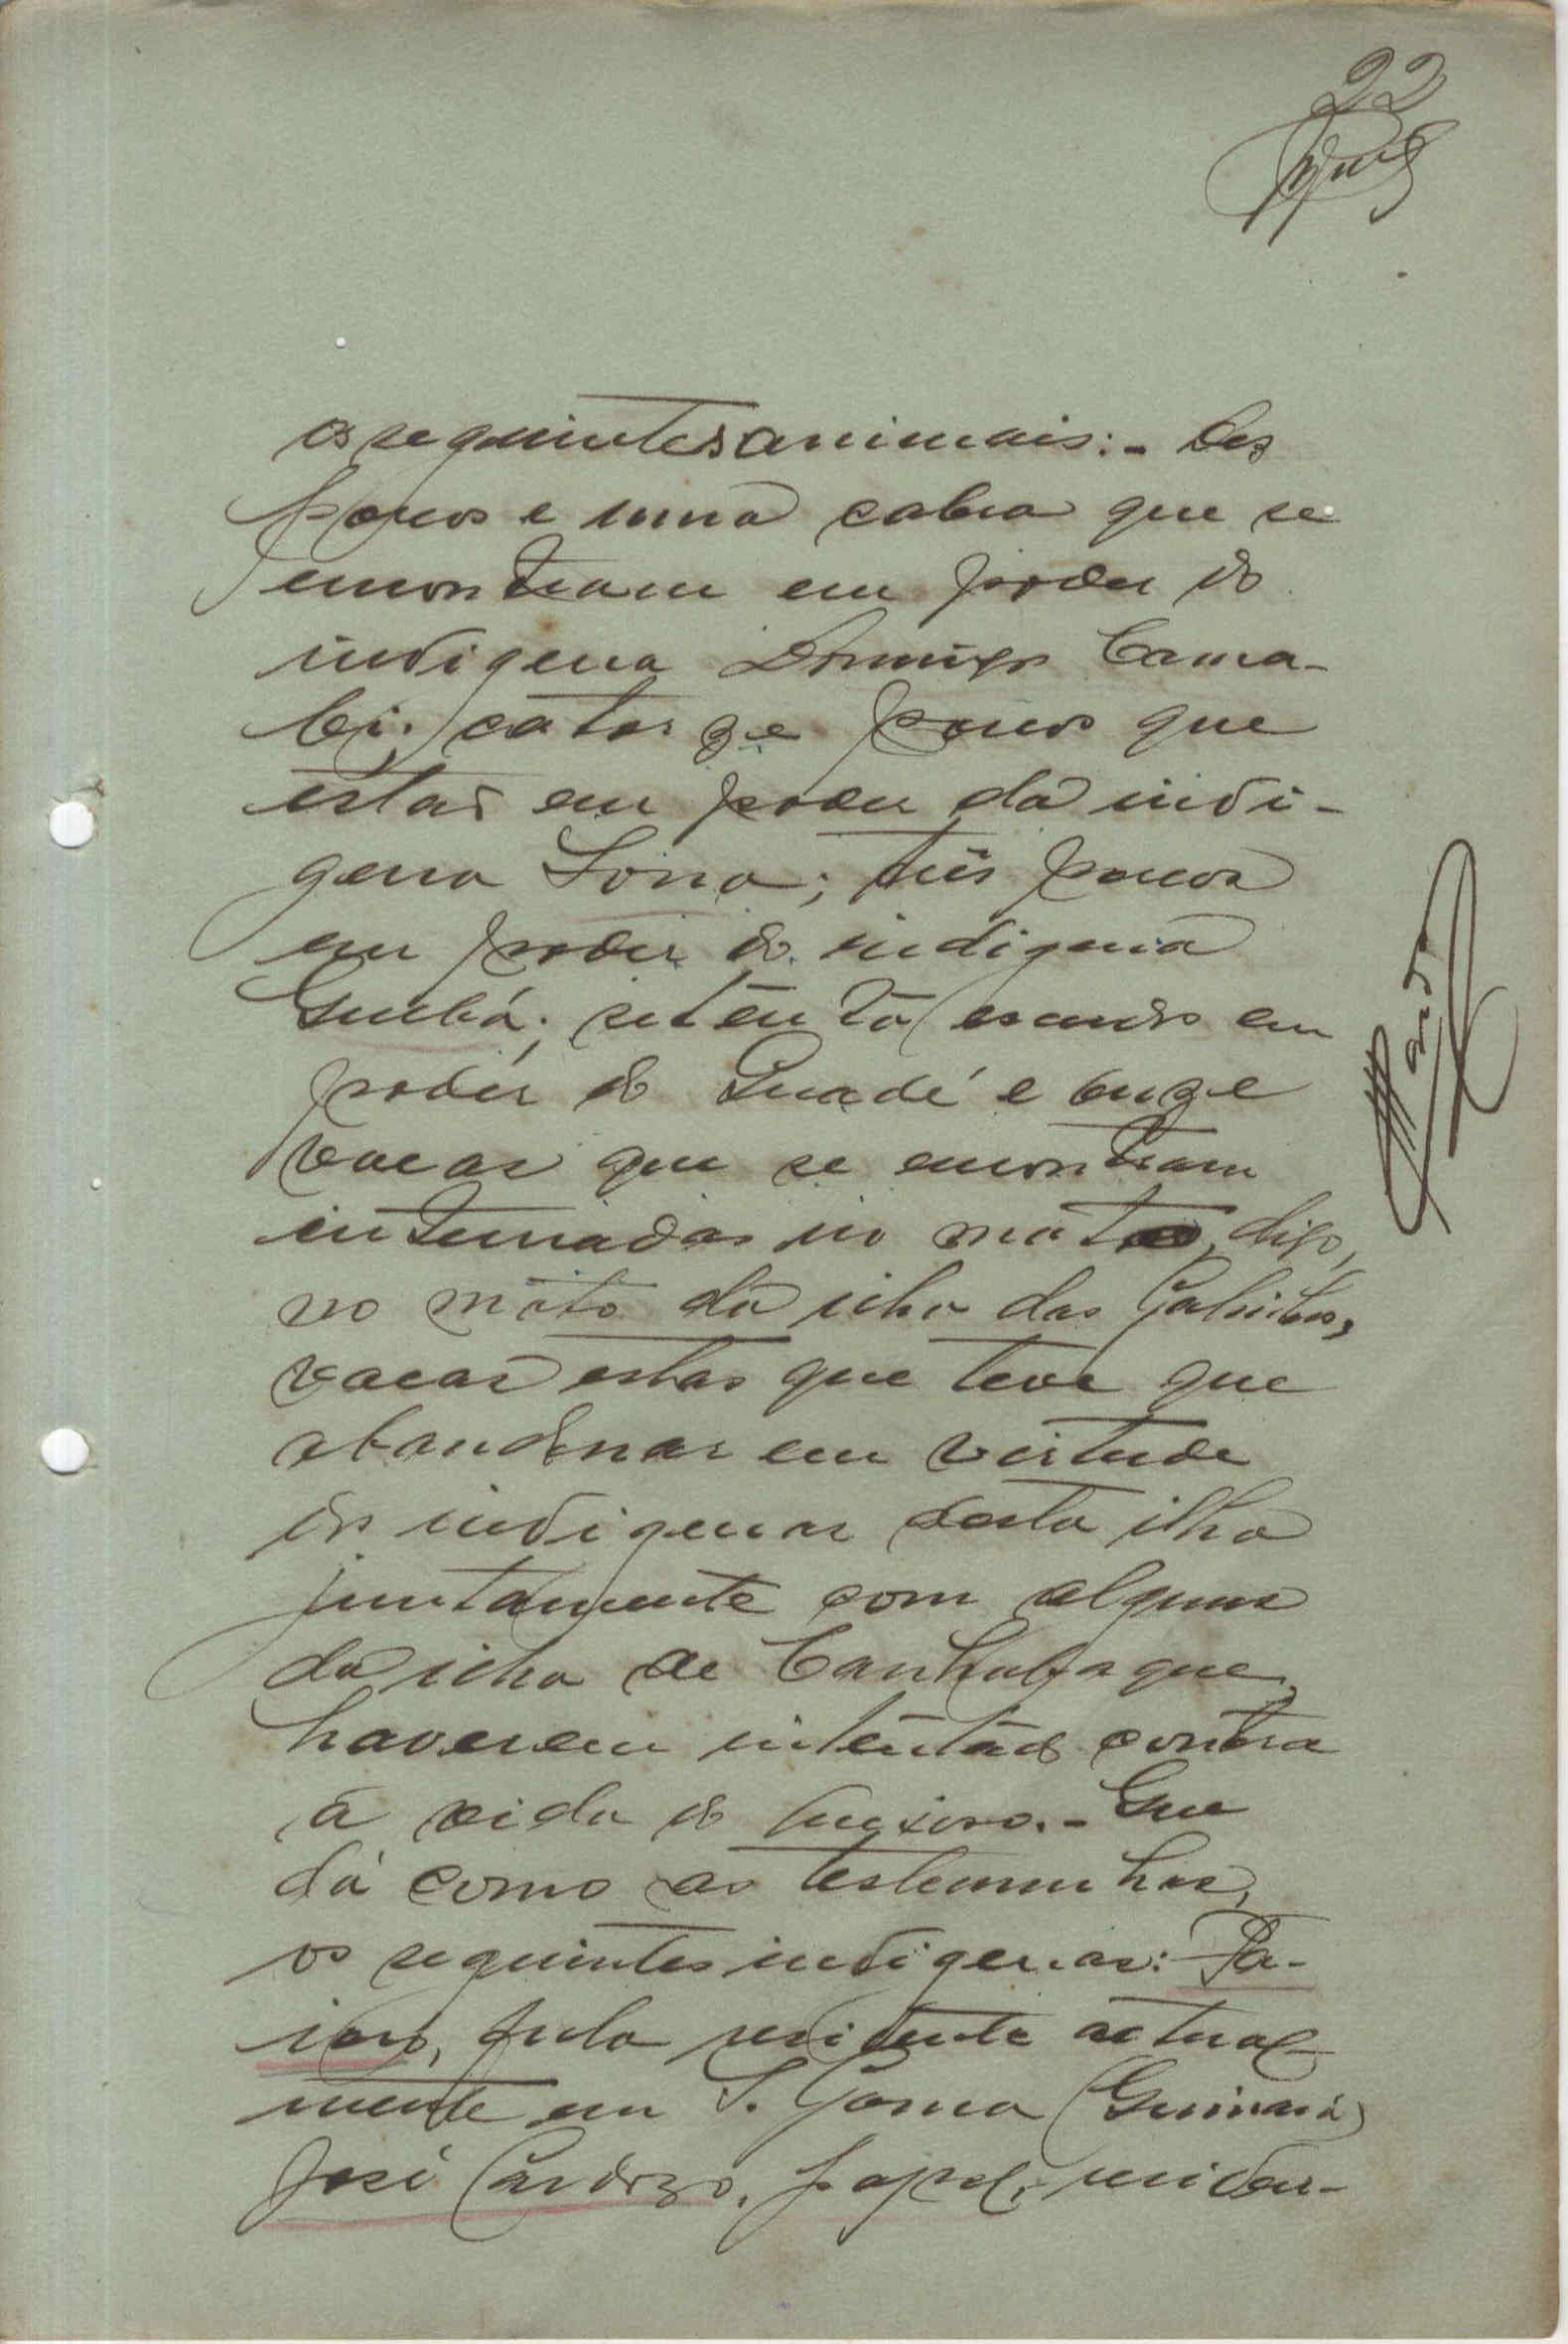 22
os seguintes animais:- Des
porcos e uma cabra que se
encontram em poder do
indigena Domingos Cama-
bi; catorze porcos que
estas em poder da indi-
gena Sona; três porcos
em poder do indigena
setenta escudos em
poder do Quadé e onze
vacas que se encontram
internadas no mato, digo,
no mato da ilha das Galinhas,
vacas estas que teve que
abandonar em virtude
dos indigenas desta ilha
juntamente com alguns
da ilha de Canhabaque
haverem intentado contra
a vida do queixoso.- Que
dá como as testemunhas,
os seguintes indigenas: Fa-
fula residente actual-
mente em S. Joana
José Cardozo, papel, residen-